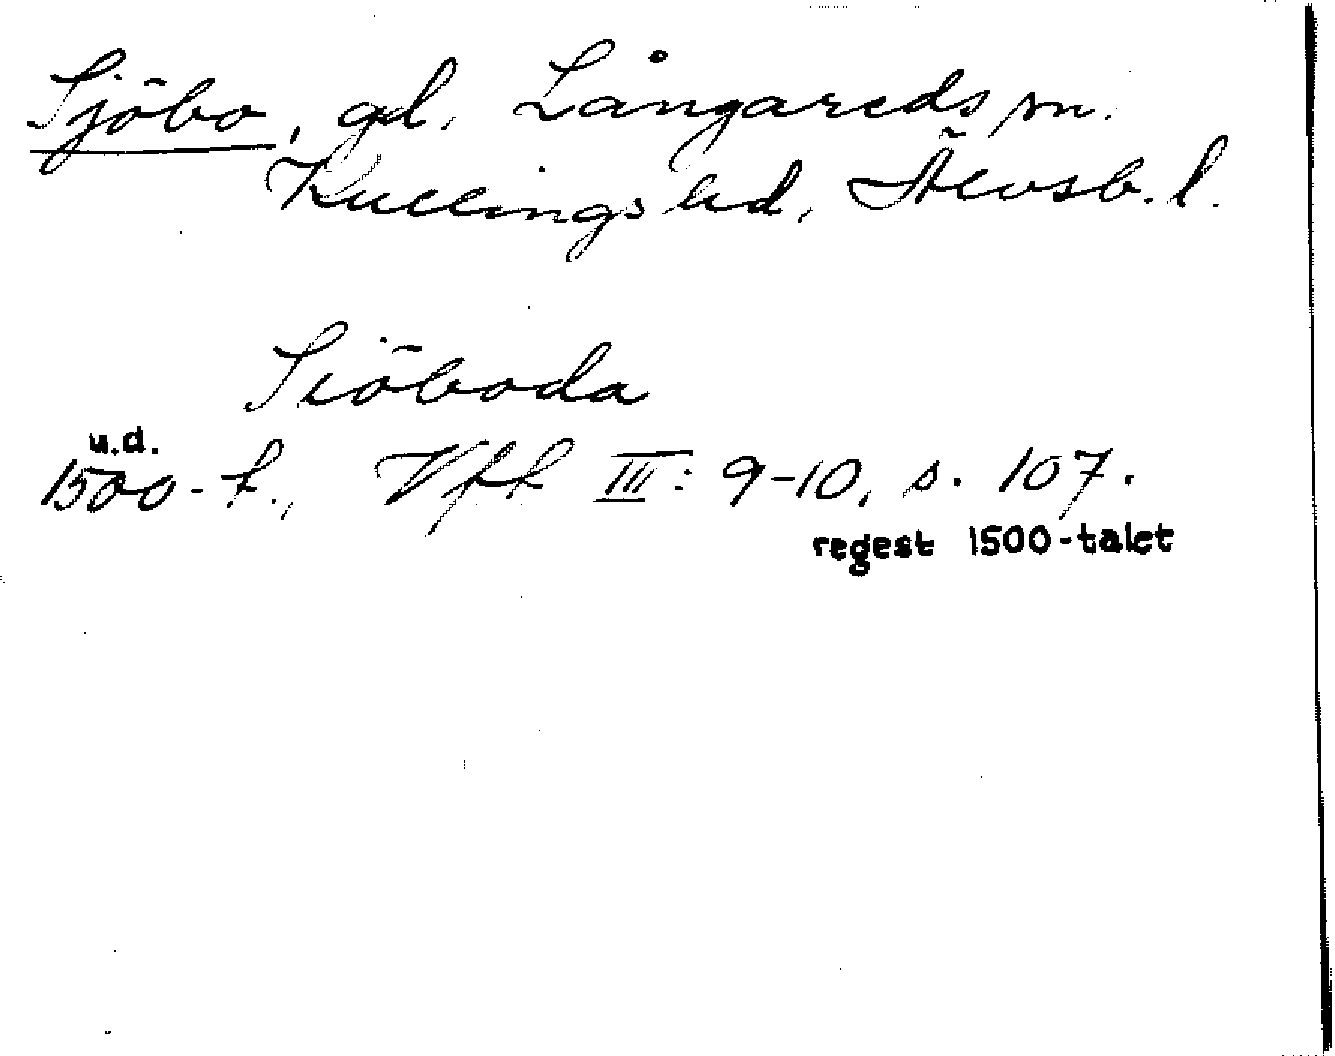 Sjöbo, gd. Långareds sn.
Kullings hd, Älvsb. l.
Siöboda
u.d.
1500-t., Vfk III: 9-10, s. 107.
regest 1500-talet